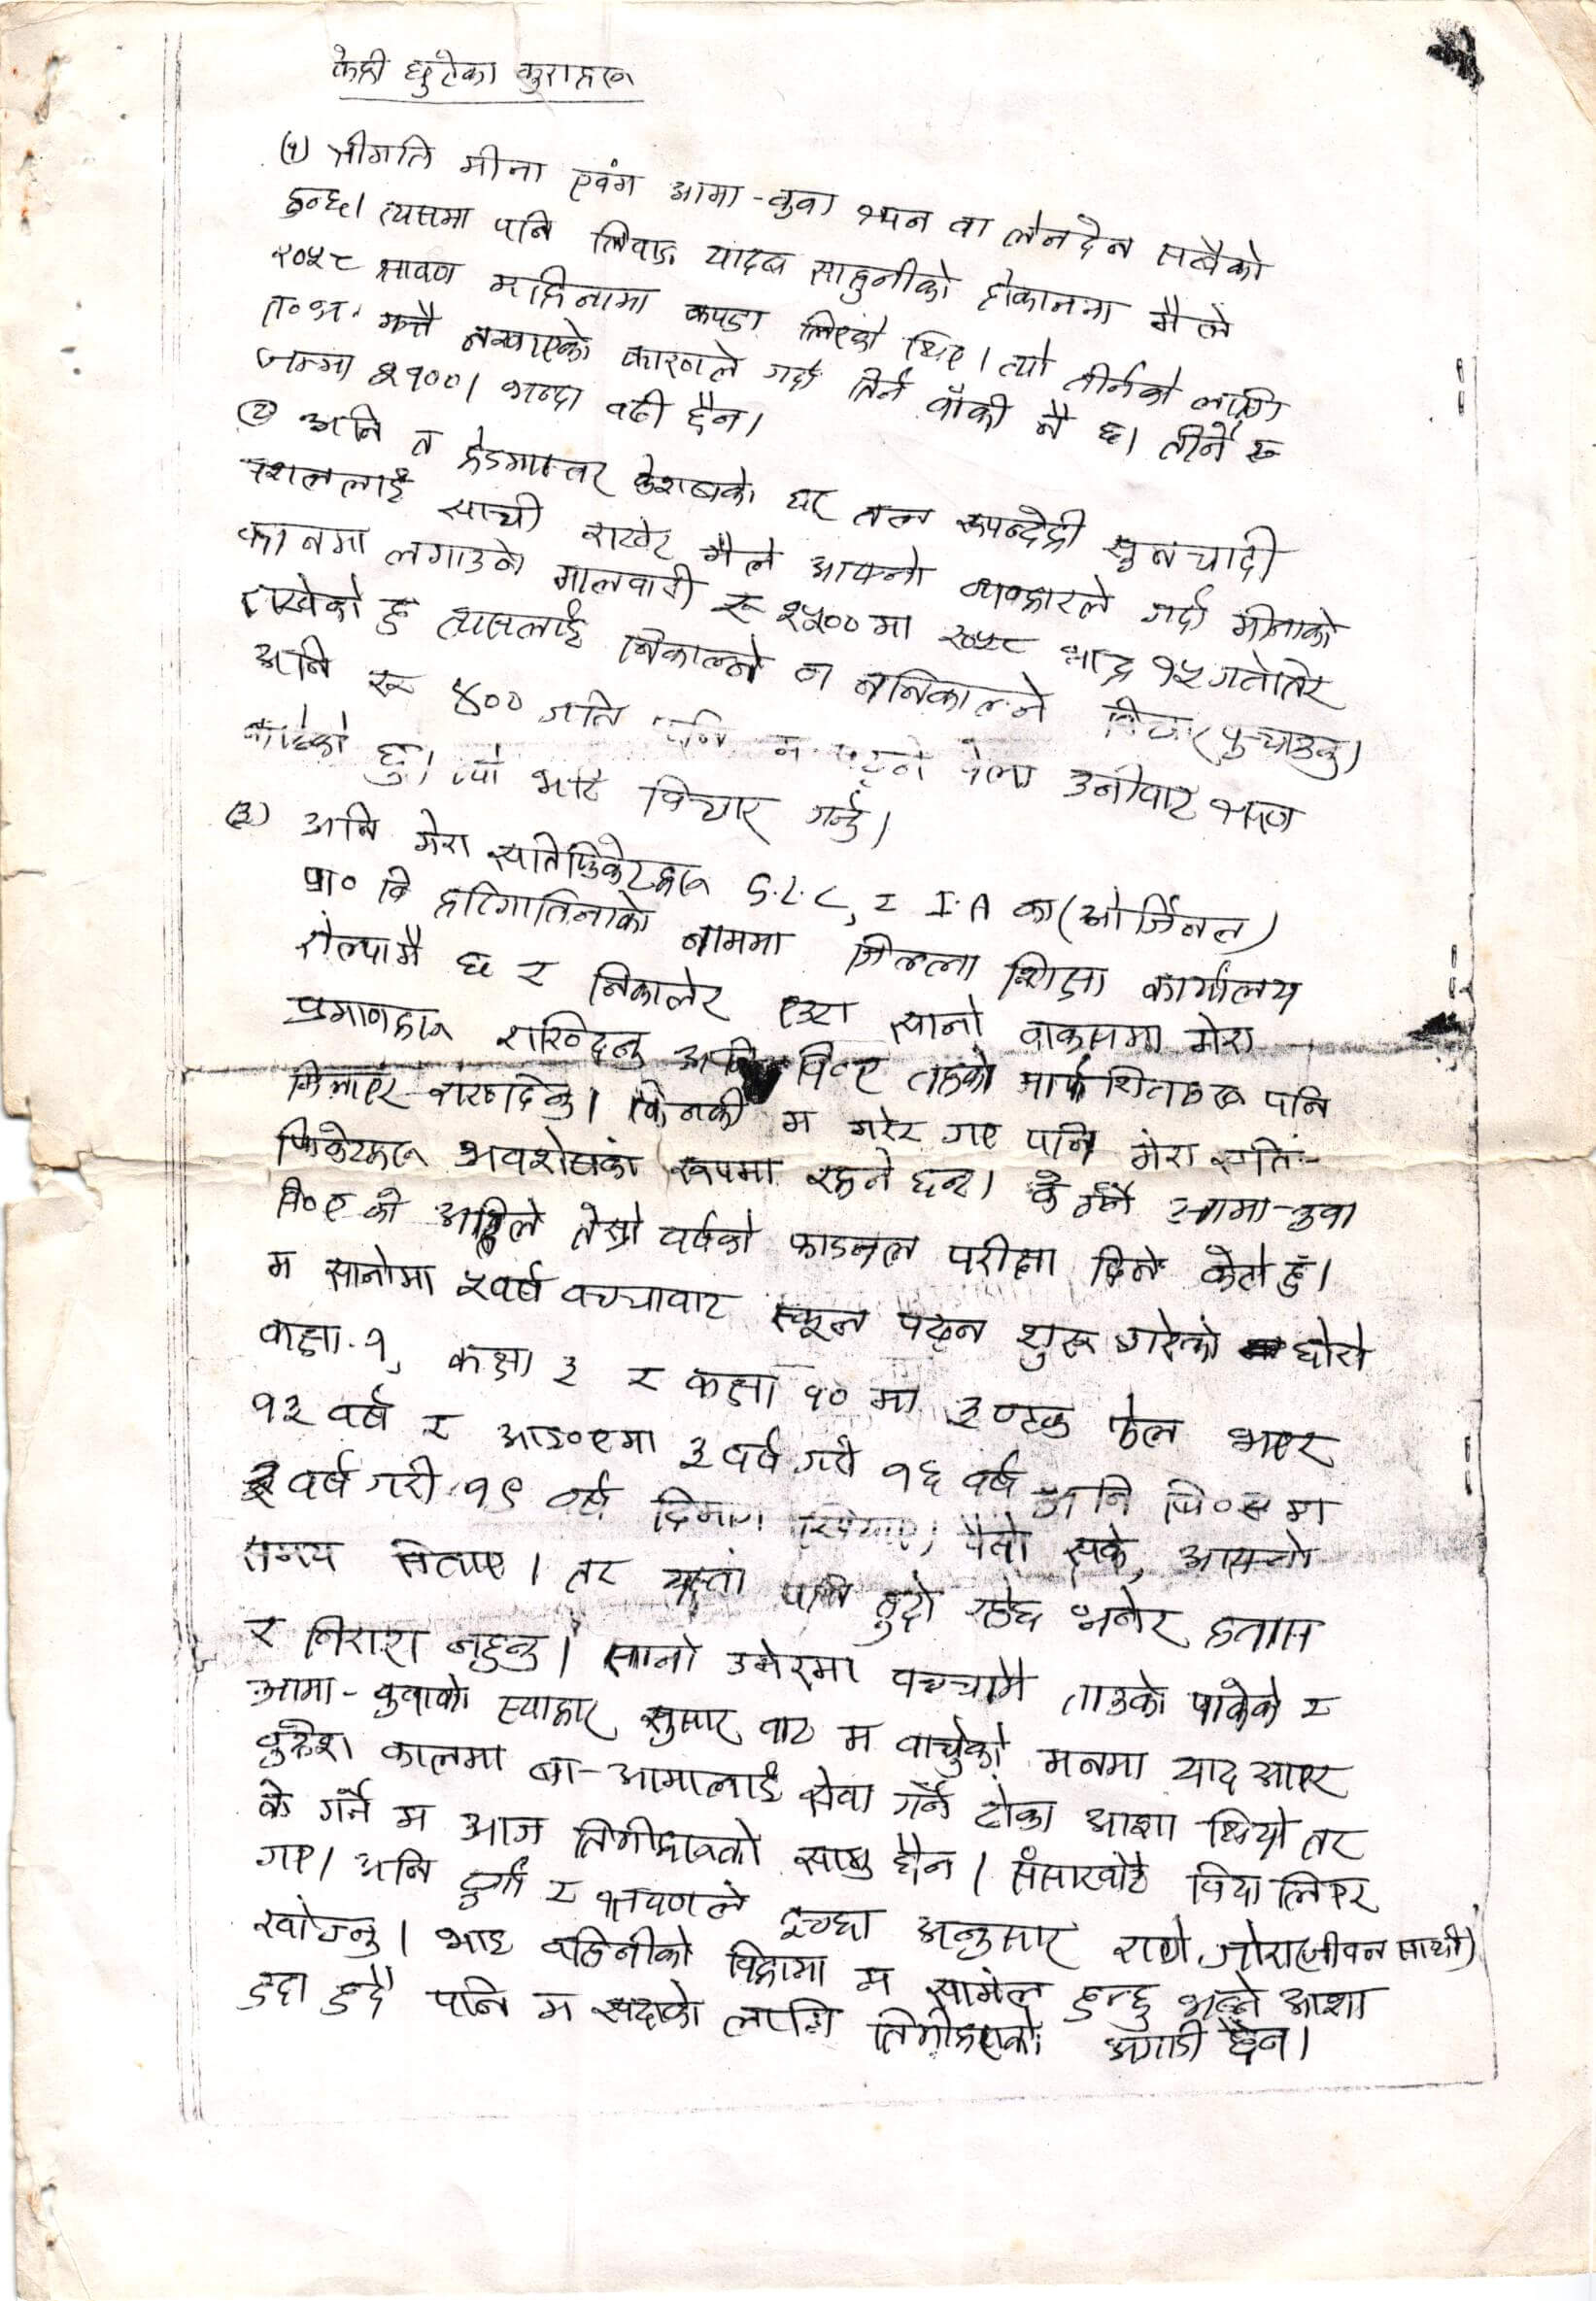 केही छुटेका कुराहरू
(१) श्रीमति मीना एवंम आमा-बुवा ऋण वा लेनदेन सबैको
हुन्छ। त्यसमा पनि लिवाङ यादव साहुनीको दोकानमा मैले
२०५८ श्रावण महिनामा कपडा लिएको थिए। त्यो तीर्नको लागि
त०भ. भत्तै नखाएको कारणले गर्दा तिर्न बाँकी नै छ। तीर्ने रू
जम्मा २१००। भन्दा बढी छैन।
(२) अनि त हेडमास्तर केशबको घर तल रूपन्देही सुनचादी
पशललाई साची राखेर मैले आफ्नो व्यवहारले गर्दा मीनाको
कानमा लगाउने मालवारी रू २५०० मा २०५८ भाद्र १५ गतेतिर
राखेको हु त्यसलाई निकाल्ने वा ननिकाल्ने विचार पुर्‍याउनु।
अनि रू ४०० जति पनि म बेला उनीबाट ऋण
छु। त्यो भटि विचार गर्नु।
(३) अनि मेरा सर्तिफिकेटहरू S.L.C, र I.A का (ओर्जिनल)
प्रा० वि हरिगातिनाको नाममा जिल्ला शिक्षा कार्यालय
रोल्पामै छ र निकालेर एउटा सानो वाकसमा मेरा
प्रमाणहरू राखिदिनु अनि विए तहको मार्कसितहरू पनि
मिलाएर राखिदिनु। किनकी म मरेर गए पनि मेरा सर्ति-
फिकेटहरू भवशेषका रूपमा रहने छन्। के गर्ने आमा-बुवा
वि०ए को अहिले तेस्रो वर्षको फाइनल परीक्षा दिने केटो हुँ।
म सानोमा ५वर्ष बच्चाबाट स्कूल पढ्न शुरू गरेको छोरो
कक्षा-१, कक्षा ३ र कक्षा १० मा ३ पटक फेल भएर
१३ वर्ष र आइ०एमा ३ वर्ष गरी १६ वर्ष अनि वि०ए मा
३ वर्ष गरी १९ वर्ष दिमाग खियाए, पैसो सके, आफ्नो
समय बिताए। तर यस्तो पनि हुदो रहेछ भनेर हतास
र निराश नहुनु। सानो उमेरमा बच्चामै ताउको पाकेको र
आमा-बुवाको स्याहार सुसार बाट म बाचेको मनमा याद आएर
बुढेश कालमा बा-आमालाई सेवा गर्ने ठोका आशा थियो तर
के गर्ने म आज तिमीहरूको सामु छैन। संसारबाटै विदा लिएर
गए। अनि दुर्गा र श्रवणले इच्छा अनुसार राम्रो जोरा(जीवन साथी)
खोज्नु। भाइ बहिनीको विहामा म सामेल हुन्छु भन्ने आशा
हुदा हुदै पनि म सदाको लागि तिमीहरूको अगाडी छैन।